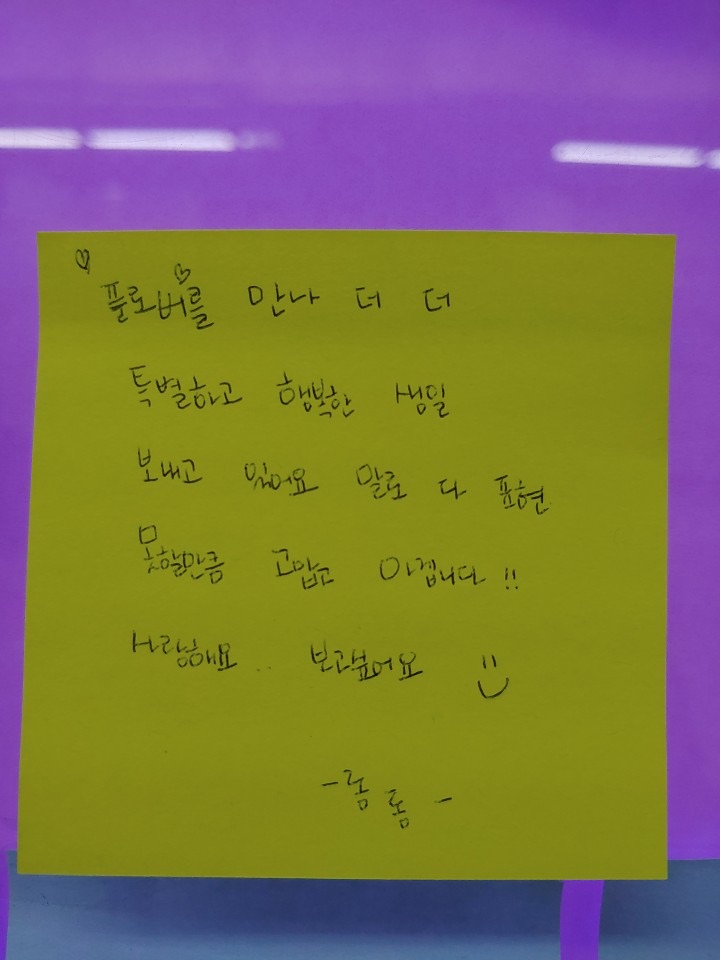 ♡
플로버를♡ 만나 더 더
특별하고 행복한 생일
보내고 있어요 말로 다 표현
못할만큼 고맙고 아낍니다 !!
사랑해요.. 보고싶어요 :)
- 롬롬 -